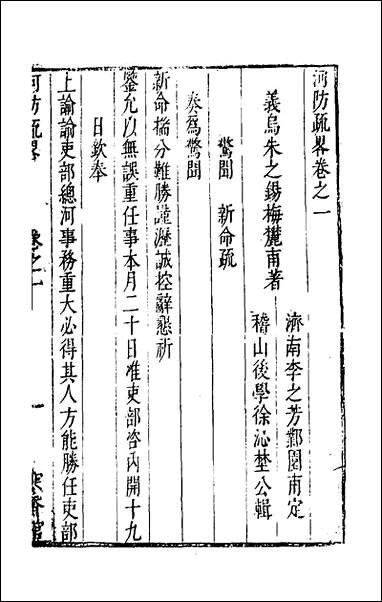 河防疏畧卷之一
濟南李之芳鄴園甫定
義烏朱之錫梅麓甫著
稽山後學徐沁埜公輯
驚聞　新命疏
奏爲驚聞
新命揣分難勝謹瀝誠控辭懇祈
鑒允以無誤重任事本月二十日准吏部咨內開十九
日欽奉
上諭諭吏部總河事務重大必得其人方能勝任吏部
河防疏畧　卷之一　一　寒香館